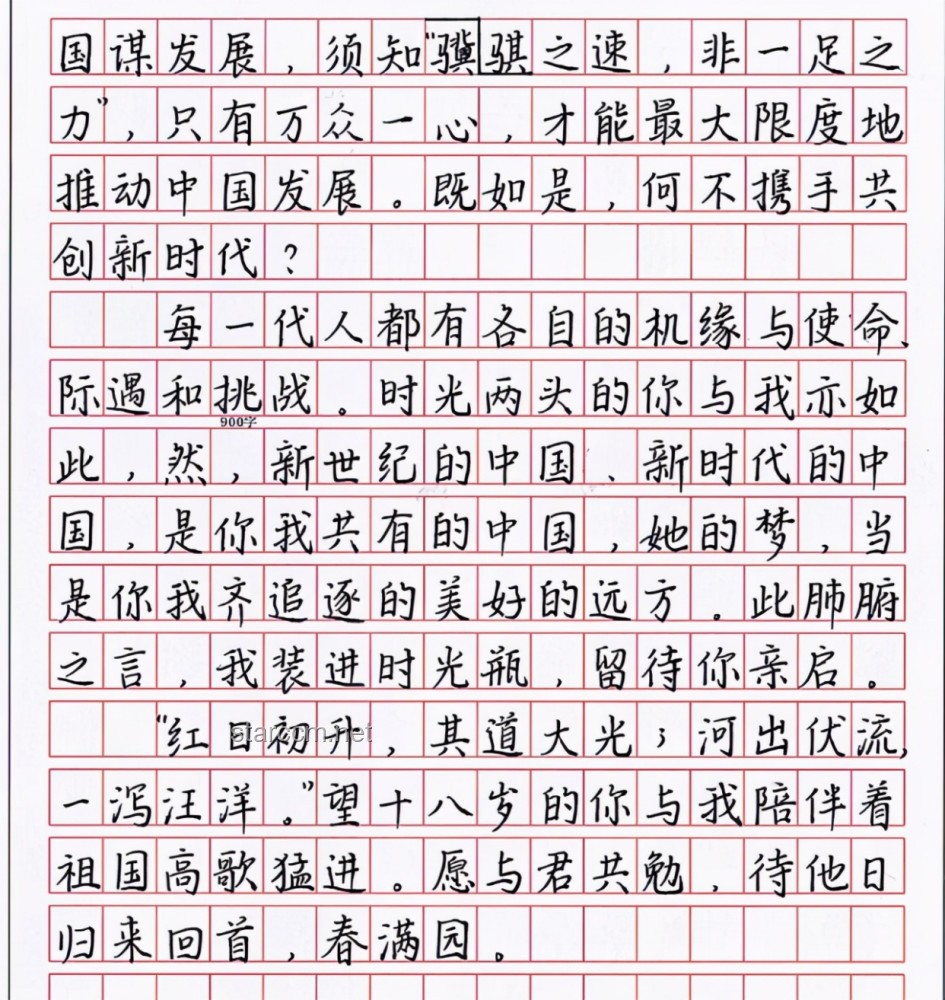 国谋发展，须知“骥骐之速，非一足之
力”，只有万众一心，才能最大限度地
推动中国发展。既如是，何不携手共
创新时代？
每一代人都有各自的机缘与使命、
际遇和挑战。时光两头的你与我亦如
900字
此，然，新世纪的中国、新时代的中
国，是你我共有的中国，她的梦，当
是你我齐追逐的美好的远方。此肺腑
之言，我装进时光瓶，留待你亲启。
“红日初升，其道大光；河出伏流，
star-ccm.net
一泻汪洋。”望十八岁的你与我陪伴着
祖国高歌猛进。愿与君共勉，待他日
归来回首，春满园。